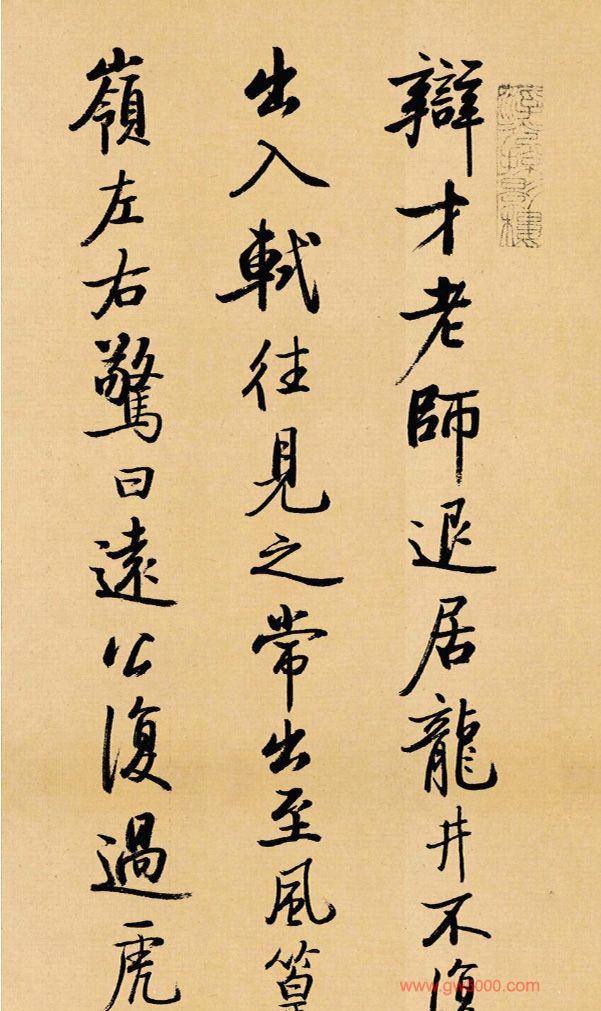 辯才老師退居龍井不復
出入軾往見之常出至風篁
嶺左右驚曰遠公復過虎
www.gw5000.com